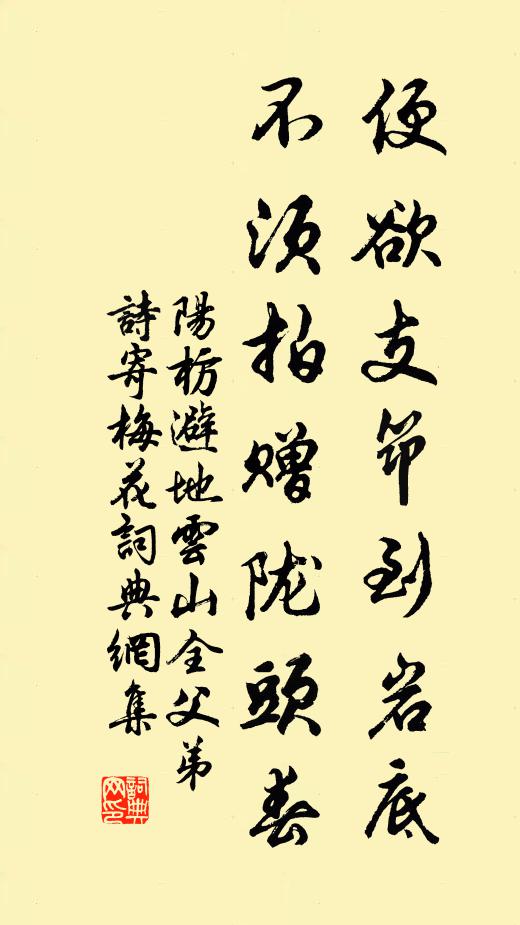 便欲支筇到岩底
不须拍赠陇頭春
陽枋避地雲山全父弟
詩寄梅花詞典網集
詞典網印